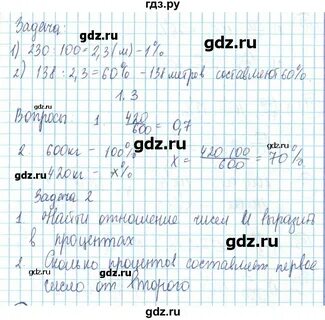 гдз.ру
Задача
1) 230 : 100 = 2,3 (м) - 1%
2) 138 : 2,3 = 60% - 138 метров составляют 60%.
1. 3
Вопросы 1 420/600 = 0,7
2. 600кг - 100%
420кг - x%
x = 420·100/600 = 70%
Задача 2
1 Найти отношение чисел и выразить в процентах
2 Сколько процентов составляет первое число от второго